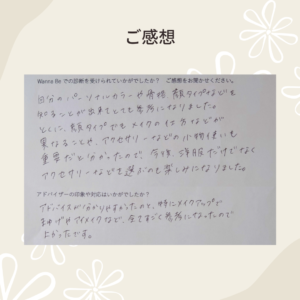 ご感想
Wanna Be での診断を受けられていかがでしたか？　ご感想をお聞かせください。
自分のパーソナルカラーや骨格、顔タイプなどを
知ることが出来てとても参考になりました。
とくに、顔タイプでもメイクの仕方などが
異なることや、アクセサリーなどの小物使いも
重要だと分かったので、今後、洋服だけでなく
アクセサリーなども選ぶのも楽しみになりました。
アドバイザーの印象や対応はいかがでしたか？
アドバイスが分かりやすかったのと、特にメイクアップで
まゆげやアイメイクなど、全てすごく参考になったので
よかったです。